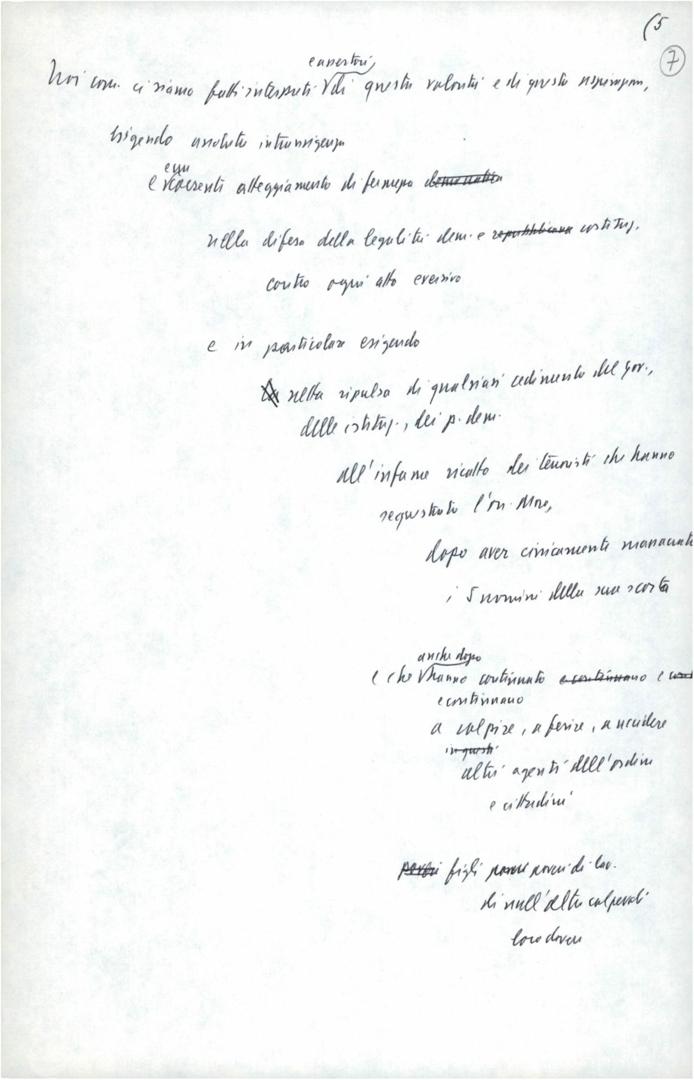 (5
7
e assertori,
Noi com. ci siamo fatti interpreti di questa volontà e di questa aspirazion,
esigendo assoluta intransigenza
e un
e coerente atteggiamento di fermezza democratica
nella difesa della legalità dem. e repubblicana costituz.
contro ogni atto eversivo
e in particolare esigendo
nella ripulsa di qualsiasi cedimento del gov.,
delle istituz., dei p. dem.
all'infame ricatto dei terroristi che hanno
sequestrato l'on. Moro,
dopo aver cinicamente massacrato
i 5 uomini della sua scorta
anche dopo
e che hanno continuato e continuano e
e continuano
a colpire, a ferire, a uccidere
in questi
altri agenti dell'ordine
e cittadini
poveri figli poveri di lav.
di null'altro colpevoli
loro dovere